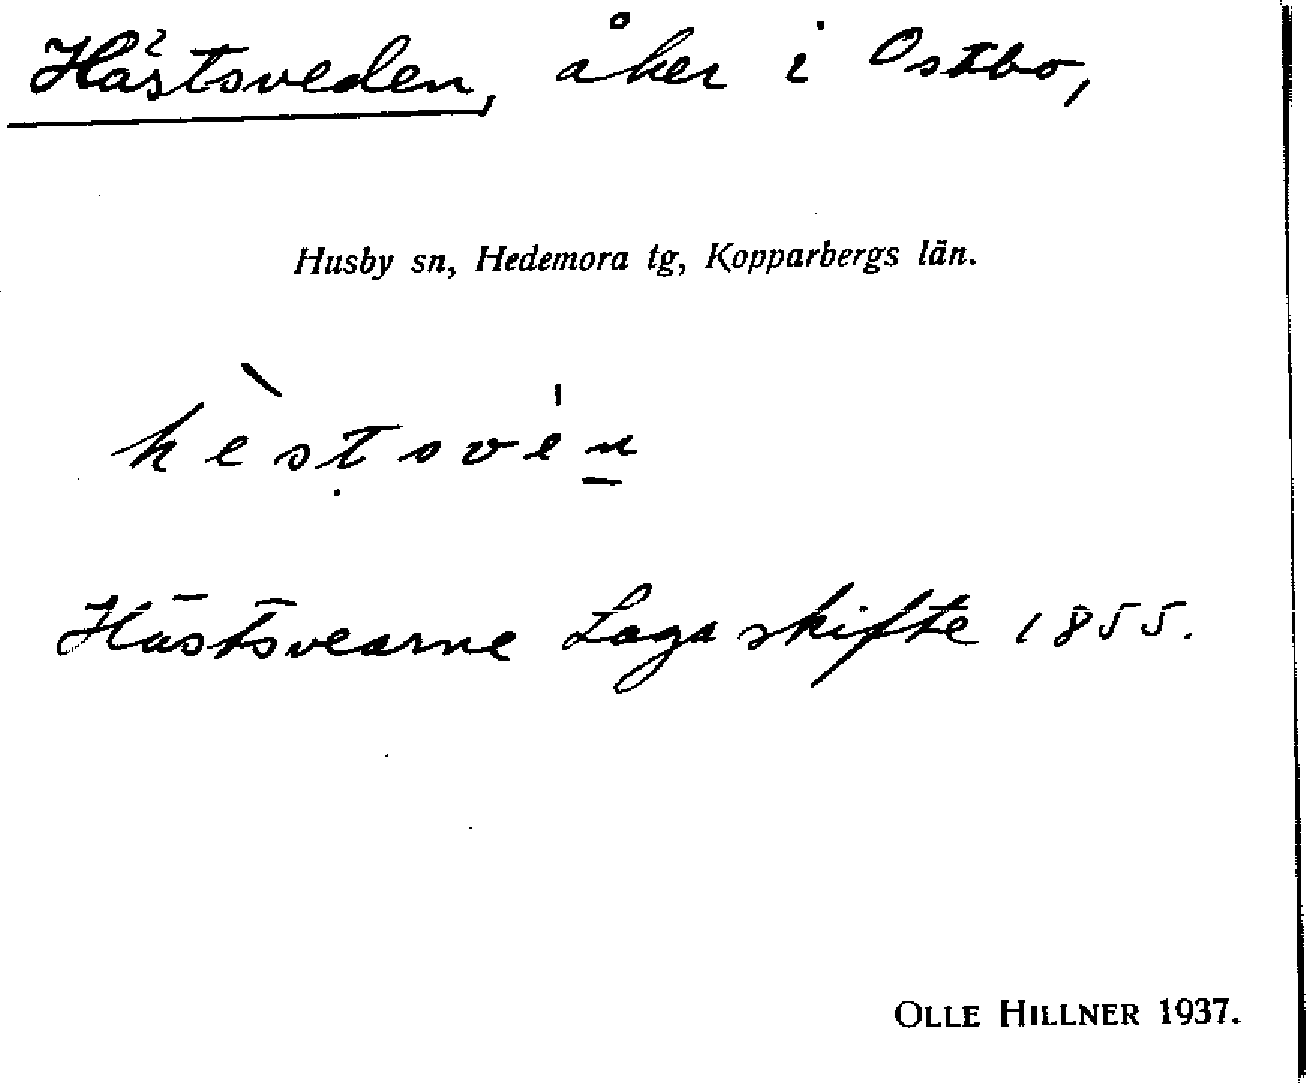 Hästsveden, åker i Östbo,
Husby sn, Hedemora tg, Kopparbergs län.
hèstsvén
Hästsvearne Laga skifte 1855.
OLLE HILLNER 1937.